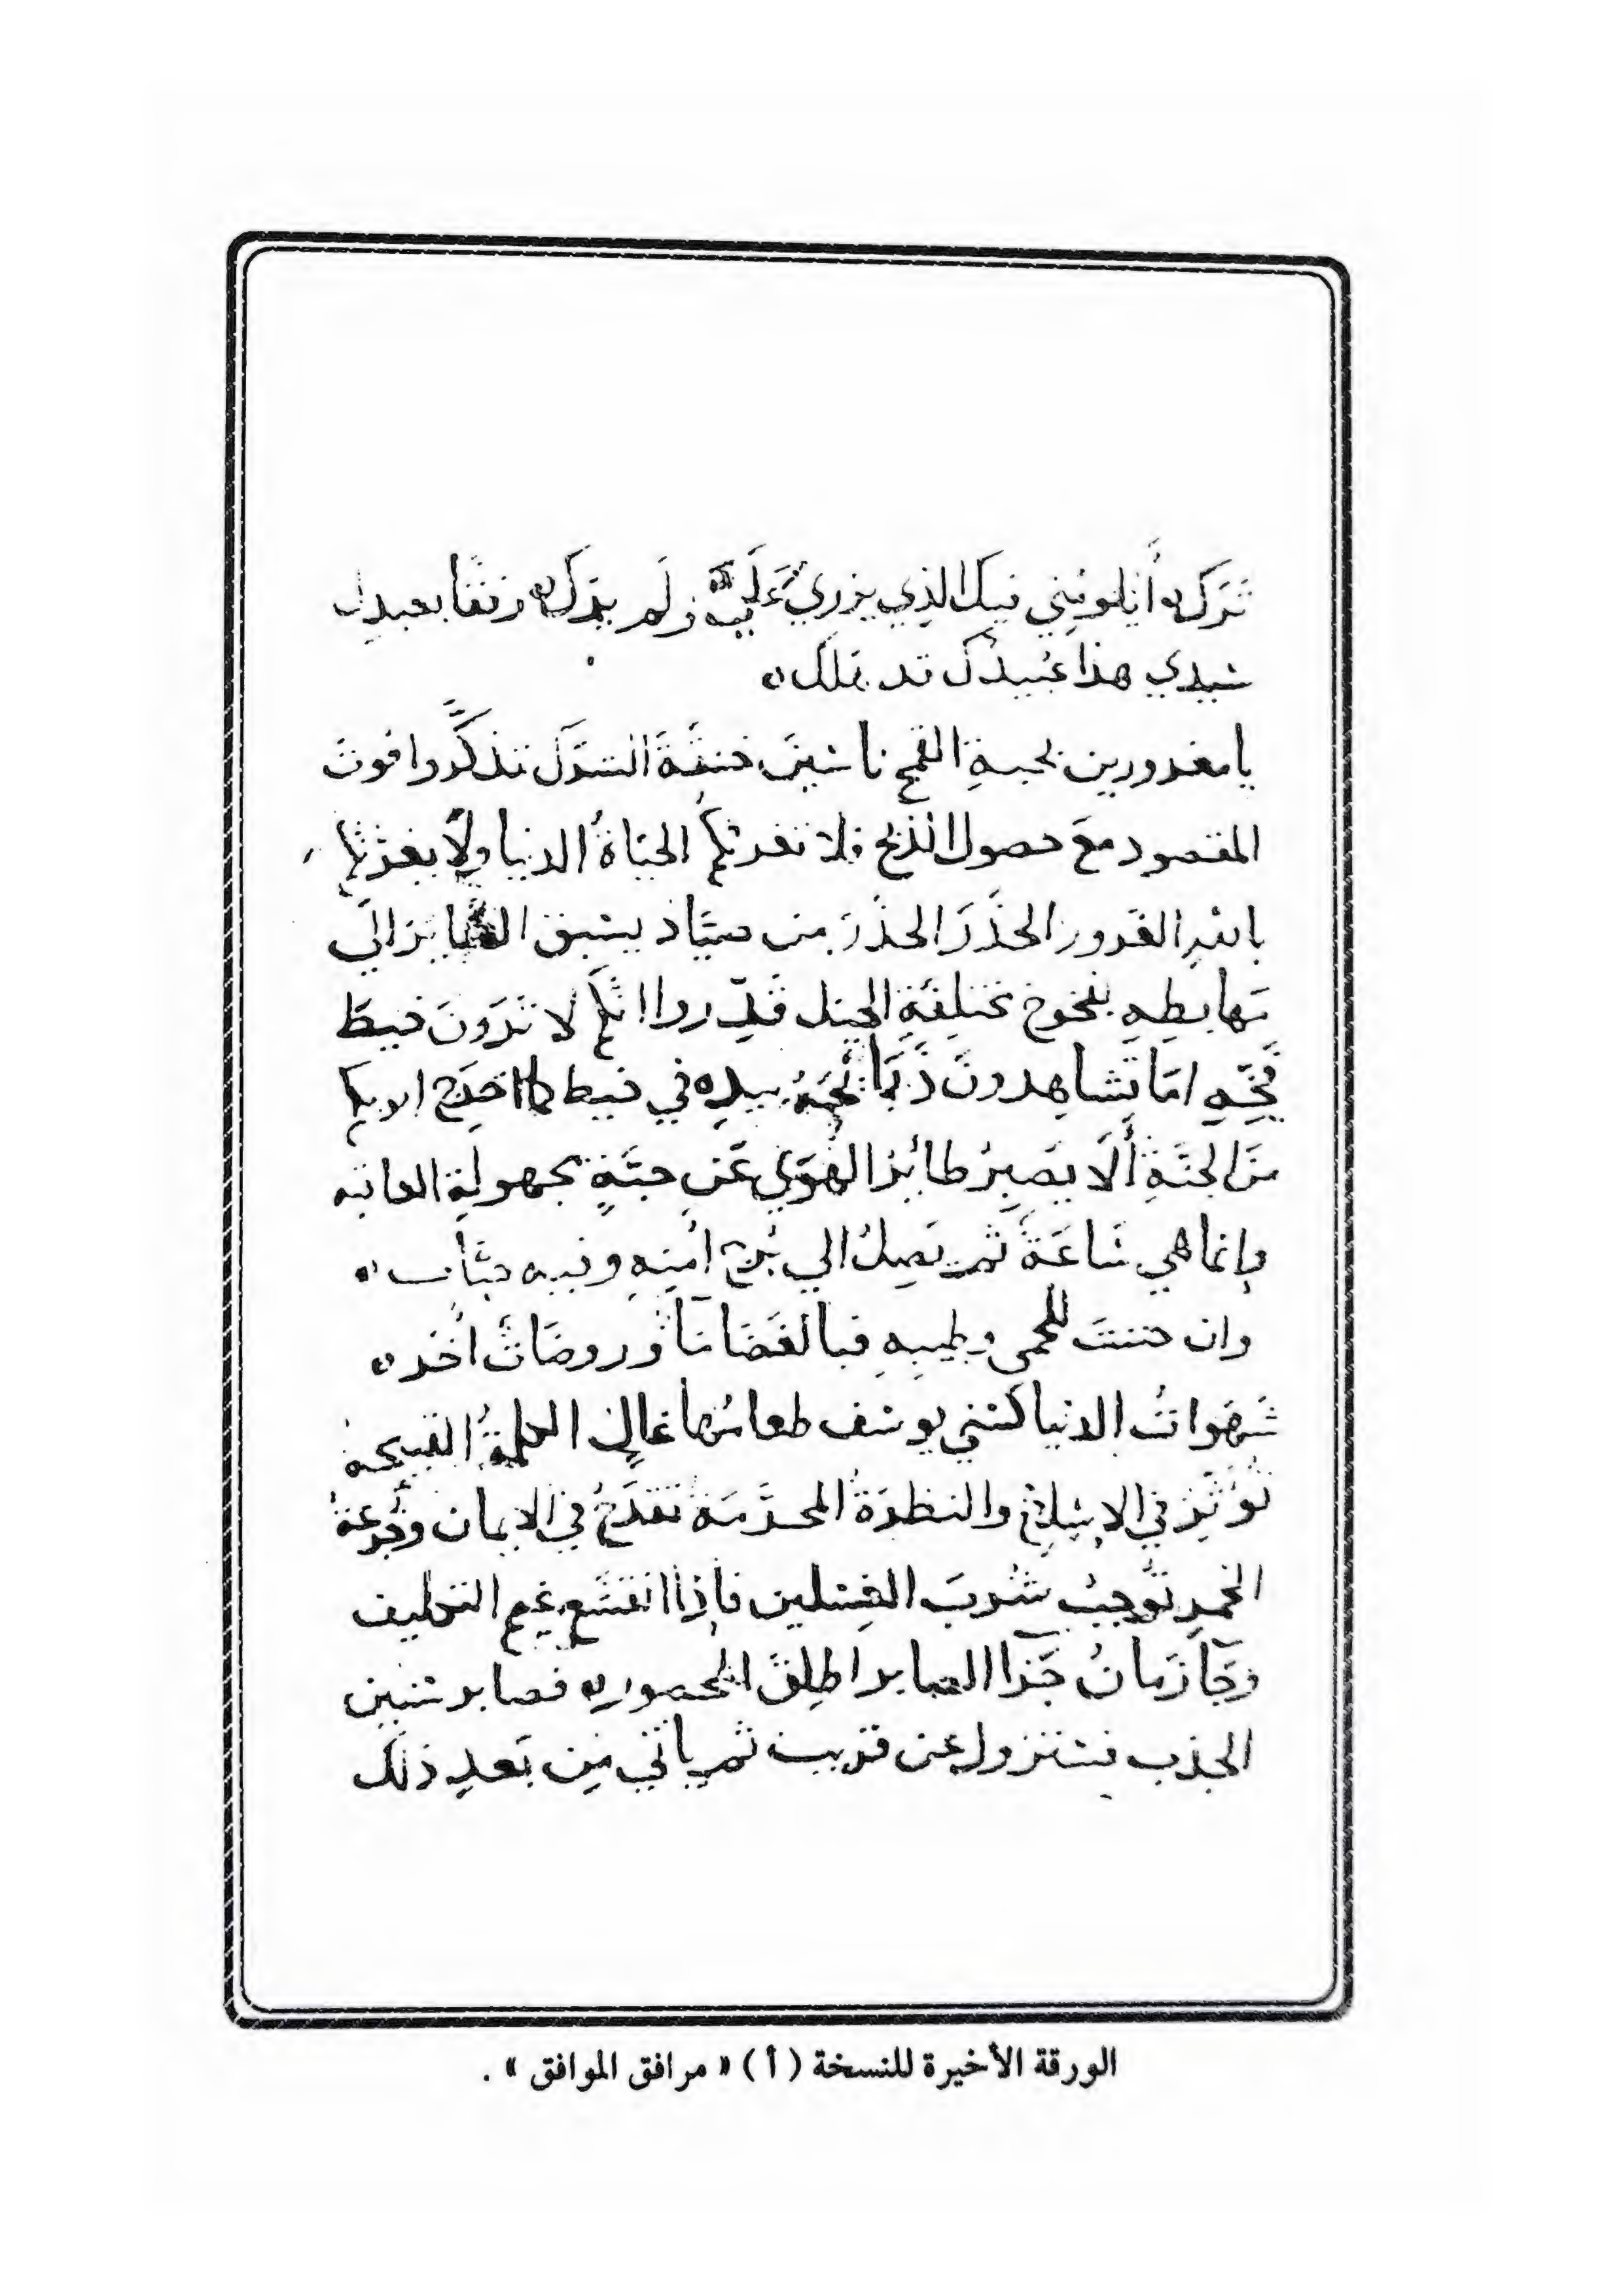 تَتَرَك ه أيلومني فيك الذي يزري عَلَيَّ ه ولم يدرك ه رفقا بعبدك
سيدي هذا عُبيدُك قد هلك ه
يا مغرورين بحبةِ القمح ناسينَ خنقَةَ الشرَك تذكَّروا فوتَ
المقصود مع حصول الذبح فلا تغرنكمُ الحيَاةُ الدنيا ولا يغرنكم
بالله الغَرور الحذَرَ الحذَرَ من صيَّاد يسبق الطاير الي
مَهابطِهِ بفخوخ مختلِفَةِ الحِيَل قَدِّروا انكم لا تَرَونَ خيطَ
فَخِّهِ امَا تشاهِدونَ ذَبَائحَهُ بيدِه في خيط كما اخرَج ابويكم
منَ الجنَّةِ ألَا يصبِرُ طائِرُ الهَوَي عَن حبَّةٍ مجهولةِ العاقبه
وإنما هي سَاعَةٌ ثم يَصِلُ الي بُرج أمنِهِ وفيه حبَّات ه
وان حننتَ للحمى وطيبهِ فبالغَضَا مَاءٌ وروضَاتٌ أُخَر ه
شَهَوَاتُ الدنيا كسني يوسف طعامُها غالٍ الكلمةُ القبيحة
تُؤثِّر في الإسلام والنظرَةُ المحرَّمَة تقدَحُ في الايمان وجُرعَةُ
الخمرِ تُوجِبُ شُربَ الغِسلين فإذا انقشَع غيم التكليف
وجَآ زَمانُ جَزآ الصابر اطلِقَ المحصور ه فصابر سنين
الجذب فستزول عن قريب ثم ياتي مِن بَعدِ ذلك
الورقة الأخيرة للنسخة ( أ ) « مرافق الموافق » .